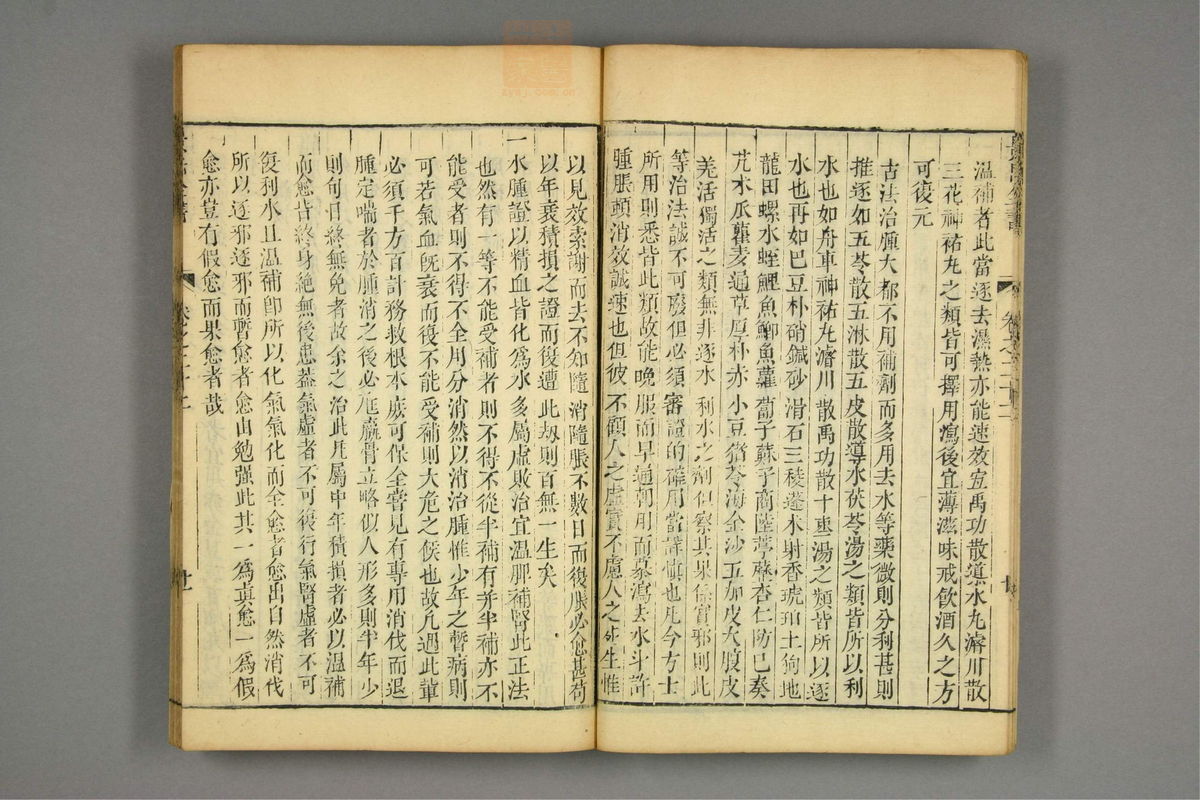 溫補者此當逐去濕熱亦能速效宜禹功散導水丸濬川散
三花神祐丸之類皆可擇用瀉後宜薄滋味戒飲酒久之方
可復元
古法治腫大都不用補劑而多用去水等藥微則分利甚則
推逐如五苓散五淋散五皮散導水茯苓湯之類皆所以利
水也如舟車神祐丸濬川散禹功散十棗湯之類皆所以逐
水也再如巴豆朴硝鍼砂滑石三稜蓬朮射香琥珀土狗地
龍田螺水蛭鯉魚鯽魚蘿蔔子蘇子商陸葶藶杏仁防己秦
艽木瓜瞿麥通草厚朴赤小豆猪苓海金沙五加皮大腹皮
羌活獨活之類無非逐水利水之劑但察其果係實邪則此
等治法誠不可廢但必須審證的確用當詳愼也凡今方士
所用則悉皆此類故能晚服而早通朝用而暮瀉去水斗許
腫脹頓消效誠速也但彼不顧人之虛實不慮人之死生惟
卷之二十二
以見效索謝而去不知隨消隨脹不數日而復脹必愈甚苟
以年衰積損之證而復遭此劫則百無一生矣
一水腫證以精血皆化爲水多屬虛敗治宜溫脾補腎此正法
也然有一等不能受補者則不得不從半補有并半補亦不
能受者則不得不全用分消然以消治腫惟少年之暫病則
可若氣血旣衰而復不能受補則大危之候也故凡遇此輩
必須千方百計務救根本庶可保全嘗見有專用消伐而退
腫定喘者於腫消之後必尫羸骨立略似人形多則半年少
則旬日終無免者故余之治此凡屬中年積損者必以溫補
而愈皆終身絕無後患蓋氣虛者不可復行氣腎虛者不可
復利水且溫補卽所以化氣氣化而全愈者愈出自然消伐
所以逐邪逐邪而暫愈者愈出勉强此其一爲眞愈一爲假
愈亦豈有假愈而果愈者哉